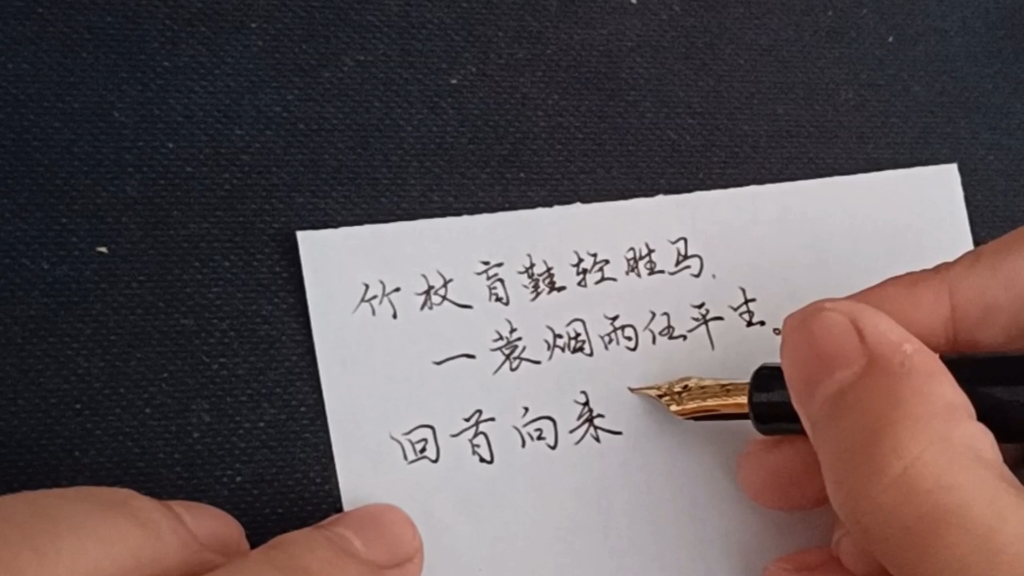 竹杖盲鞋轻胜马,
一蓑烟雨任平生。
回首向来